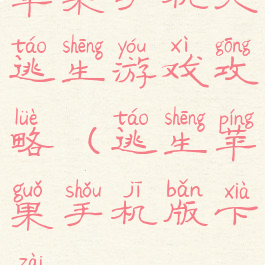 苹果手机大
táo shēng yóu xì gōng
逃生游戏攻
lüè táo shēng píng
略（逃生苹
guǒ shǒu jī bǎn xià
果手机版下
zài